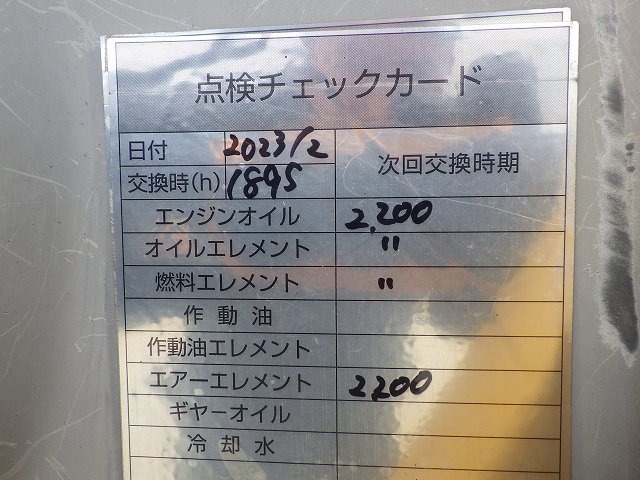 点検チェックカード
日付 2023/2 次回交換時期
交換時(h) 1895
エンジンオイル 2,200
オイルエレメント 〃
燃料エレメント 〃
作動油
作動油エレメント
エアーエレメント 2200
ギヤーオイル
冷却水